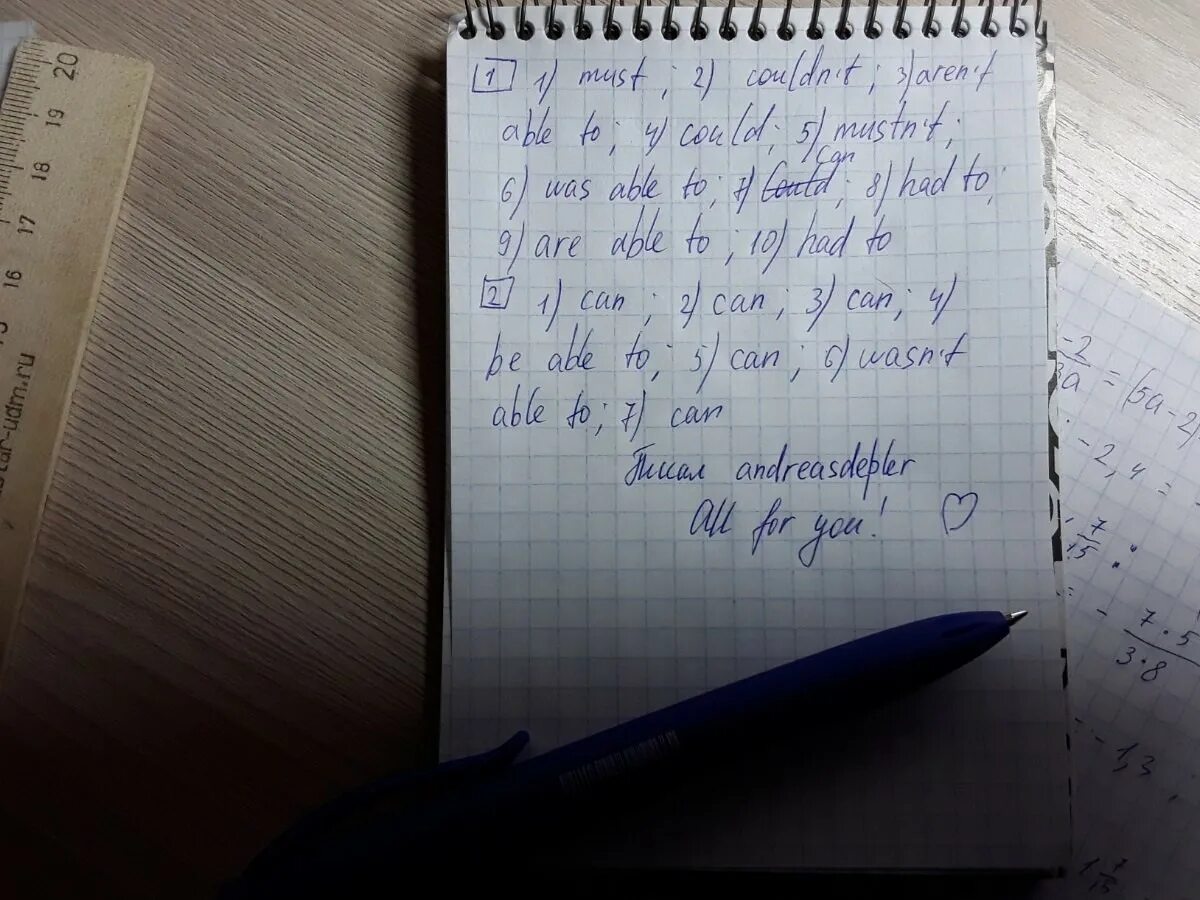 1 1) must; 2) couldn't; 3) aren't
able to; 4) could; 5) mustn't;
6) was able to; 7) could can; 8) had to;
9) are able to; 10) had to
2 1) can; 2) can; 3) can; 4)
be able to; 5) can; 6) wasn't
able to; 7) can
Писал andreasdepler
All for you! ♡
20
19
18
17
16
-2
3a = (5a-2)
-2,4 =
7
15 :
= - 7·5
3·8
-1,3
1 7
15